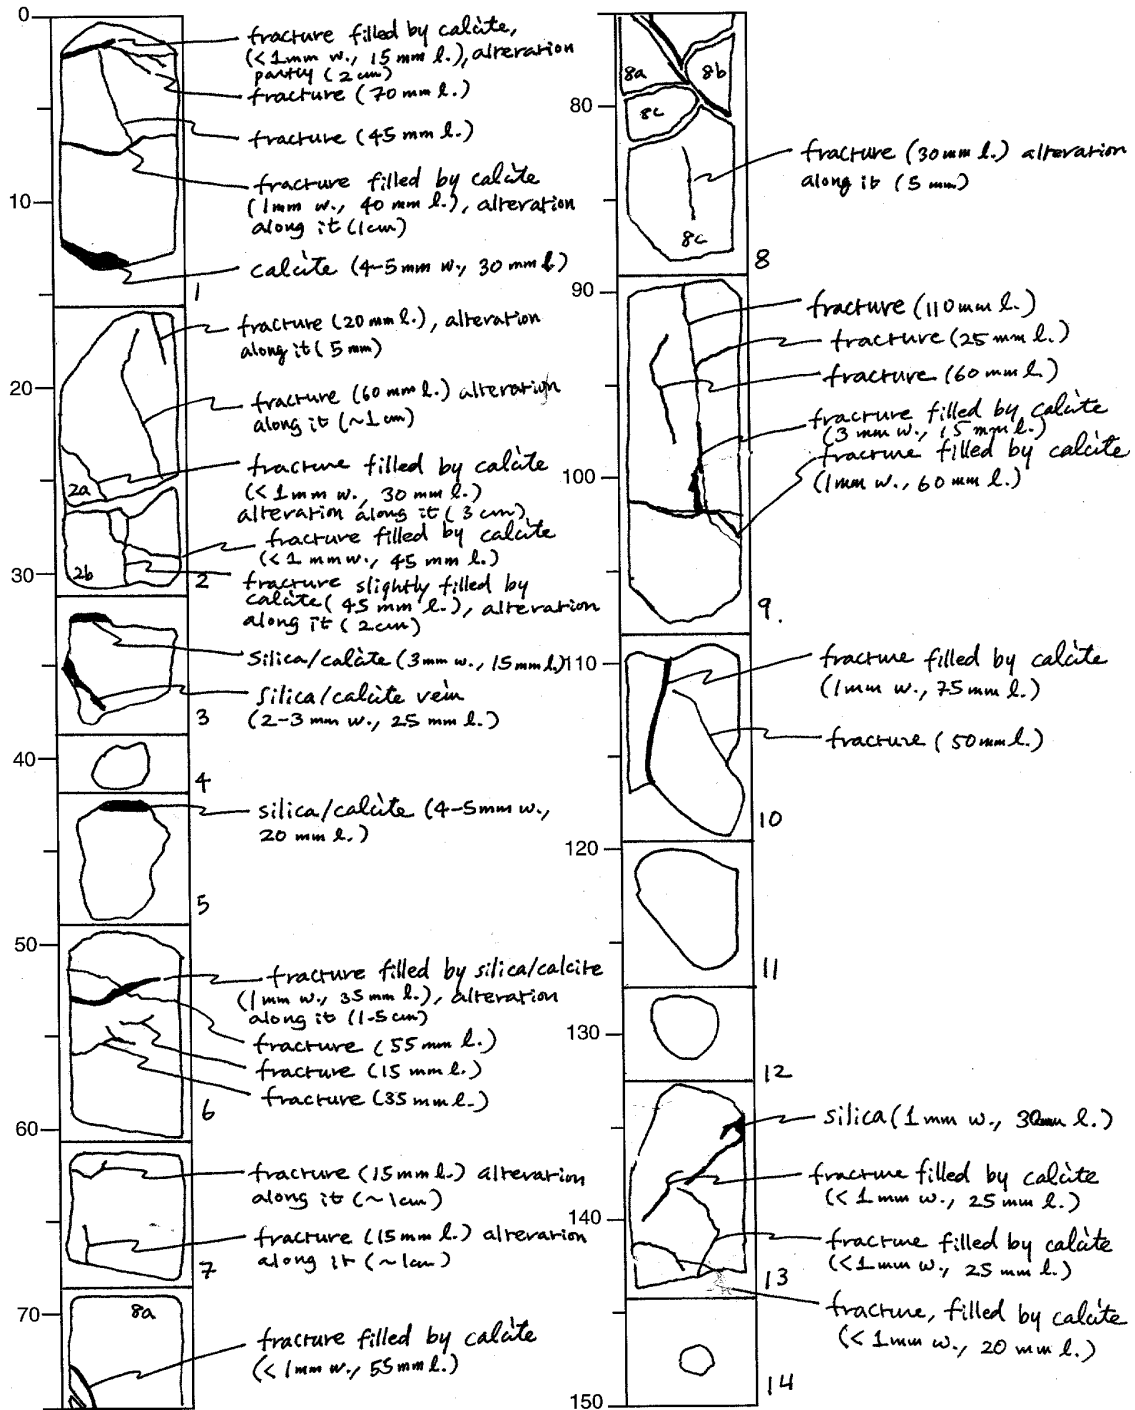 0
fracture filled by calcite,
(<1mm w., 15 mm l.), alteration
partly (2 cm)
fracture (70 mm l.)
fracture (45 mm l.)
fracture filled by calcite
(1mm w., 40 mm l.), alteration
along it (1cm)
10
calcite (4-5 mm w., 30 mm l)
1
fracture (20 mm l.), alteration
along it (5 mm)
20
fracture (60 mm l.) alteration
along it (~1 cm)
fracture filled by calcite
(<1 mm w., 30 mm l.)
alteration along it (3 cm)
2a
fracture filled by calcite
(<1 mm w., 45 mm l.)
30
2b
2
fracture slightly filled by
calcite (45 mm l.), alteration
along it (2cm)
silica/calcite (3mm w., 15mm l.)
silica/calcite vein
(2-3 mm w., 25 mm l.)
3
40
4
silica/calcite (4-5mm w.,
20 mm l.)
5
50
fracture filled by silica/calcite
(1mm w., 35 mm l.), alteration
along it (1-5 cm)
fracture (55 mm l.)
fracture (15 mm l.)
fracture (35 mm l.)
6
60
fracture (15 mm l.) alteration
along it (~1cm)
fracture (15 mm l.) alteration
along it (~1cm)
7
70
8a
fracture filled by calcite
(<1mm w., 55mm l.)
8a
8b
80
8c
fracture (30 mm l.) alteration
along it (5 mm)
8c
8
90
fracture (110 mm l.)
fracture (25 mm l.)
fracture (60 mm l.)
fracture filled by calcite
(3 mm w., 15 mm l.)
fracture filled by calcite
(1mm w., 60 mm l.)
100
9.
110
fracture filled by calcite
(1mm w., 75 mm l.)
fracture (50mm l.)
10
120
11
130
12
silica (1 mm w., 30mm l.)
fracture filled by calcite
(<1 mm w., 25 mm l.)
140
fracture filled by calcite
(<1 mm w., 25 mm l.)
13
fracture, filled by calcite
(<1mm w., 20 mm l.)
14
150